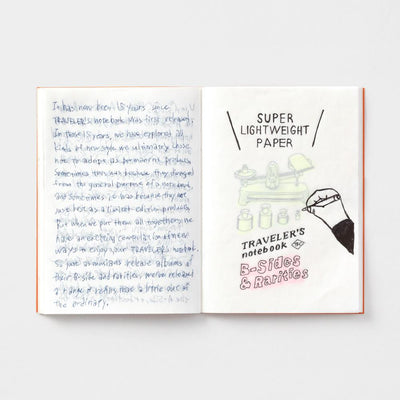 It has now been 15 years since
TRAVELER'S notebook was first released.
In those 15 years, we have explored all
kinds of new style we ultimately chose
not to adopt as permanent products.
Sometimes this was because they diverged
from the general purpose of a notebook,
and sometimes it was because they not
just best as a limited edition products.
But when we put them all together, we
have an exciting compilation of new
ways to enjoy your TRAVELER'S notebook.
So just as musicians release albums of
their B-side and rarities, we've released
a range of refills that a little out of
the ordinary.
SUPER
LIGHTWEIGHT
PAPER
TRAVELER'S
notebook
B-Sides
& Rarities